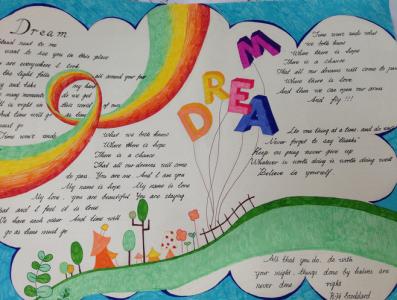 Dream
stand next to me
want to see you in this place
are everywhere I look
the light falls all around your fair
and take my hand
many moments do we get
is right in this world of ours
And time will go as time
must go
Time won't ends What we both knows
Where there is hope
There is a chance
That all our dreams will come
to pass. You are me. And I am you
My name is hope My name is love
My love, you are beautiful You are staying
and I feel it is true
We have each other And time will
go as time must go
DREAM
Time wont ends what
we both knows
Where there is hope
There is a chance
That all our dreams will come to pass
Where there is love
And then we can open our arms
And fly !!!
Do one thing at a time, and do well
Never forget to say thanks
Keep on going never give up
Whatever is worth doing is worth doing well
Believe in yourself
All that you do, do with
your might, things done by halves are
never done right
R.H. Stoddard